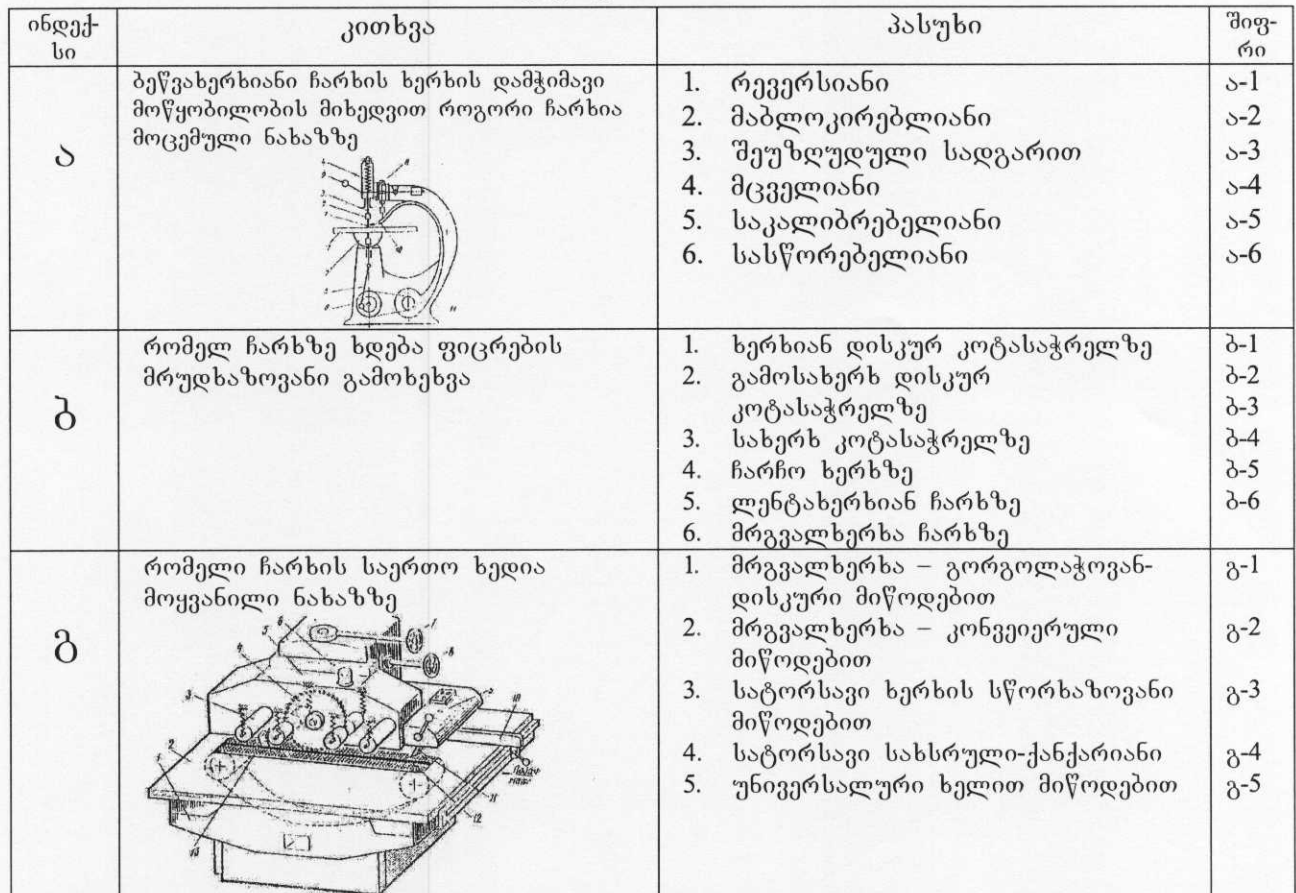 ინდექ-
სი
კითხვა
პასუხი
შიფ-
რი
ა
ბეწვახერხიანი ჩარხის ხერხის დამჭიმავი
მოწყობილობის მიხედვით როგორი ჩარხია
მოცემული ნახაზზე
1. რევერსიანი
2. მაბლოკირებლიანი
3. შეუზღუდული სადგარით
4. მცველიანი
5. საკალიბრებელიანი
6. სასწორებელიანი
ა-1
ა-2
ა-3
ა-4
ა-5
ა-6
ბ
რომელ ჩარხზე ხდება ფიცრების
მრუდხაზოვანი გამოხეხვა
1. ხერხიან დისკურ კოტასაჭრელზე
2. გამოსახერხ დისკურ
კოტასაჭრელზე
3. სახერხ კოტასაჭრელზე
4. ჩარჩო ხერხზე
5. ლენტახერხიან ჩარხზე
6. მრგვალხერხა ჩარხზე
ბ-1
ბ-2
ბ-3
ბ-4
ბ-5
ბ-6
გ
რომელი ჩარხის საერთო ხედია
მოყვანილი ნახაზზე
1
2
3
4
5
6
10
11
12
1. მრგვალხერხა – გორგოლაჭოვან-
დისკური მიწოდებით
2. მრგვალხერხა – კონვეიერული
მიწოდებით
3. სატორსავი ხერხის სწორხაზოვანი
მიწოდებით
4. სატორსავი სახსრული-ქანქარიანი
5. უნივერსალური ხელით მიწოდებით
გ-1
გ-2
გ-3
გ-4
გ-5